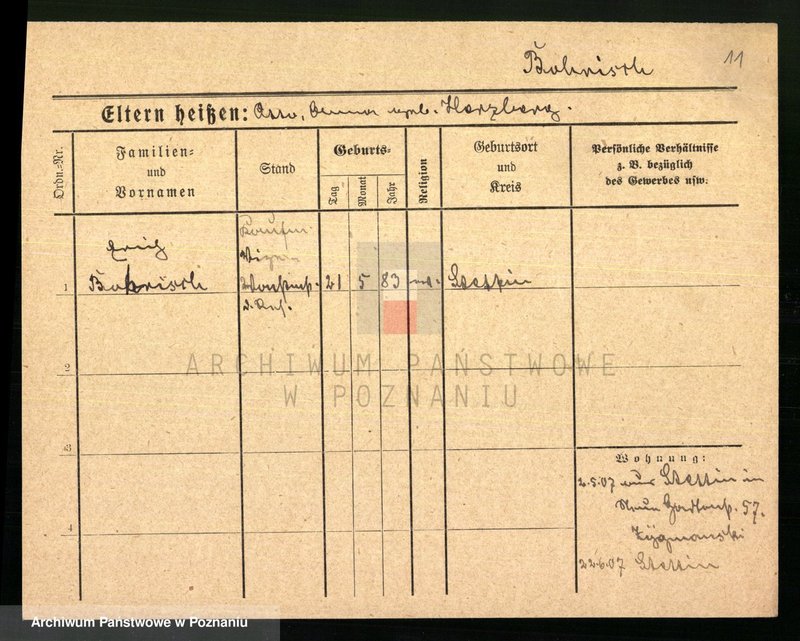 Bohrisch
11
Eltern heißen: Otto, geb. Herzberg.
Ordn.-Nr.
Familien-
und
Vornamen
Stand
Geburts-
Tag
Monat
Jahr
Religion
Geburtsort
und
Kreis
Persönliche Verhältnisse
z. B. bezüglich
des Gewerbes usw.
Kaufm.
Erich
Vize
1 Bohrisch 21 5 83 Stettin
d. Res.
ARCHIWUM PAŃSTWOWE
W POZNANIU
2
3
4
Wohnung:
2.5.07 aus Stettin in
57.
Zygmanski
22.6.07 Stettin
Archiwum Państwowe w Poznaniu